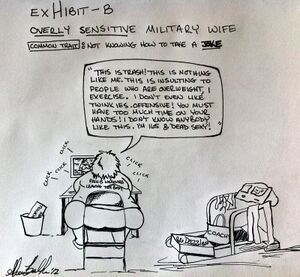 EXHIBIT-B
OVERLY SENSITIVE MILITARY WIFE
COMMON TRAIT: NOT KNOWING HOW TO TAKE A JOKE
"THIS IS TRASH! THIS IS NOTHING
LIKE ME. THIS IS INSULTING TO
PEOPLE WHO ARE OVERWEIGHT. I
EXERCISE. I DON'T EVEN LIKE
TWINKIES. OFFENSIVE! YOU MUST
HAVE TOO MUCH TIME ON YOUR
HANDS! I DON'T KNOW ANYBODY
LIKE THIS. I'M 115 & DEAD SEXY!"
CLICK
CLICK
CLICK
CLICK
CLICK
LEADING THE WAY
COACH
'12